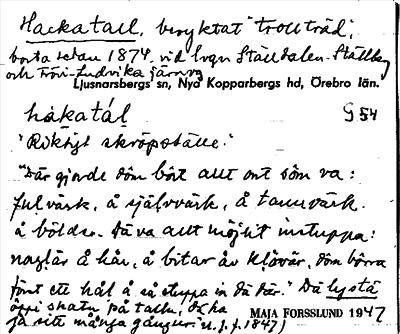 Hackatall, beryktat "trollträd",
borta sedan 1874. vid Ställdalen - Ställberg
och järnväg
Ljusnarsbergs sn, Nya Kopparbergs hd, Örebro län.
håkatál G 54
"Riktigt skröpställe."
"Där gjorde döm bôrt allt ont söm va:
fulvärk, å självvärk, å tannvärk.
å bölder. Dä va allt möjlit instuppa:
naglar å hår, å bitar åv klävär, döm börra
först ett hål å så stuppa in dä där." Dä lystä
öppi skatu på talln, dä ha
ja sitt många gånger
MAJA FORSSLUND 1947